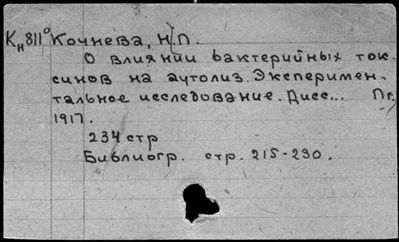 Кн 811⁰ Кочнева, Н.П.
О влиянии бактерийных ток-
синов на аутолиз. Эксперимен-
тальное исследование. Дисс... Пг,
1917.
234 стр
Библиогр. стр. 215-230.